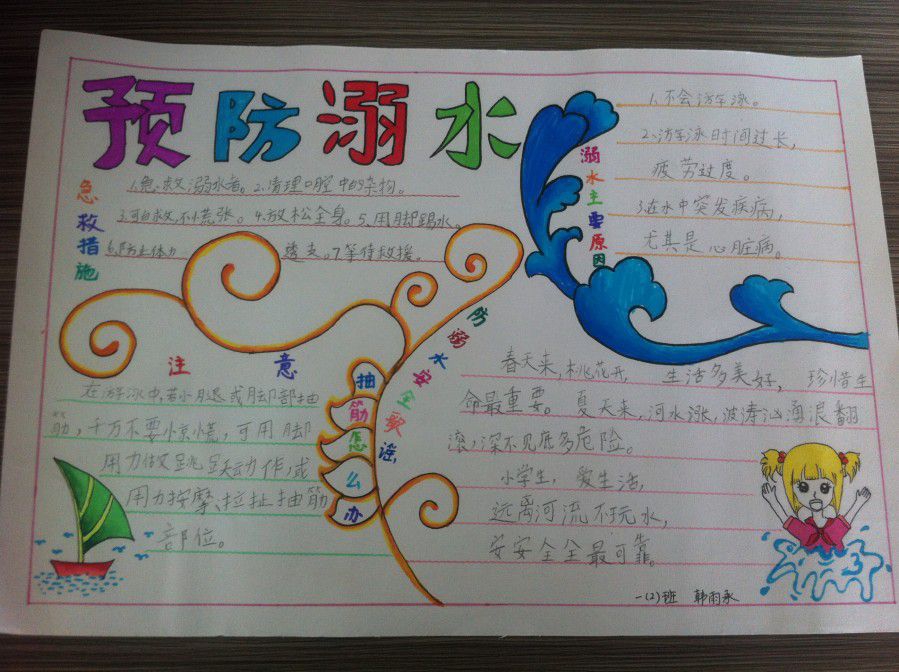 预防溺水
急救措施
1.急救溺水者。2.清理口腔中的杂物。
3.可自救,不慌张。4.放松全身。5.用脚踢水。
6.防止体力
透支。7.等待救援。
溺水主要原因
1.不会游泳。
2.游泳时间过长,
疲劳过度。
3.在水中突发疾病,
尤其是心脏病。
注意
抽筋怎么办
在游泳中,若小腿或脚部抽
筋,千万不要惊慌,可用脚
用力做跳跃动作,或
用力按摩、拉扯抽筋
部位。
防溺水安全歌谣
春天来,桃花开,生活多美好,珍惜生
命最重要。夏天来,河水涨,波涛汹涌浪翻
滚,深不见底多危险。
小学生,爱生活,
远离河流不玩水,
安安全全最可靠。
一(2)班 韩雨